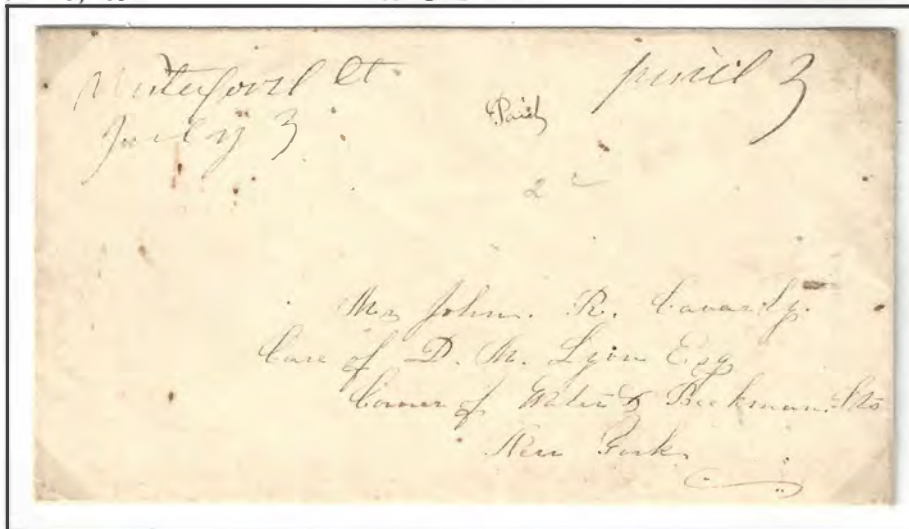 Waterford Ct. paid 3
July 3
Paid
2
Mr John. R. Cavarly.
Care of D. M. Lyon Esq
Corner of Water & Beekman Sts
New York